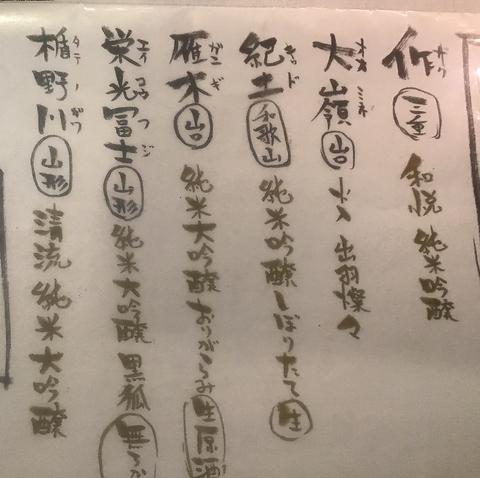 作 ザク 三重 和悦 純米吟醸
大嶺 オオミネ 山口 出羽燦々
紀土 キッド 和歌山 純米吟醸しぼりたて 生
雁木 ガンギ 山口 純米大吟醸おりがらみ 生原酒
栄光冨士 エイコウフジ 山形 純米大吟醸 黒狐 無ろか
楯野川 タテノガワ 山形 清流 純米大吟醸